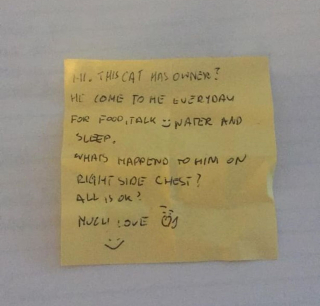 HI. THIS CAT HAS OWNER?
HE COME TO ME EVERYDAY
FOR FOOD, TALK WATER AND
SLEEP.
WHATS HAPPEND TO HIM ON
RIGHT SIDE CHEST?
ALL IS OK?
MUCH LOVE